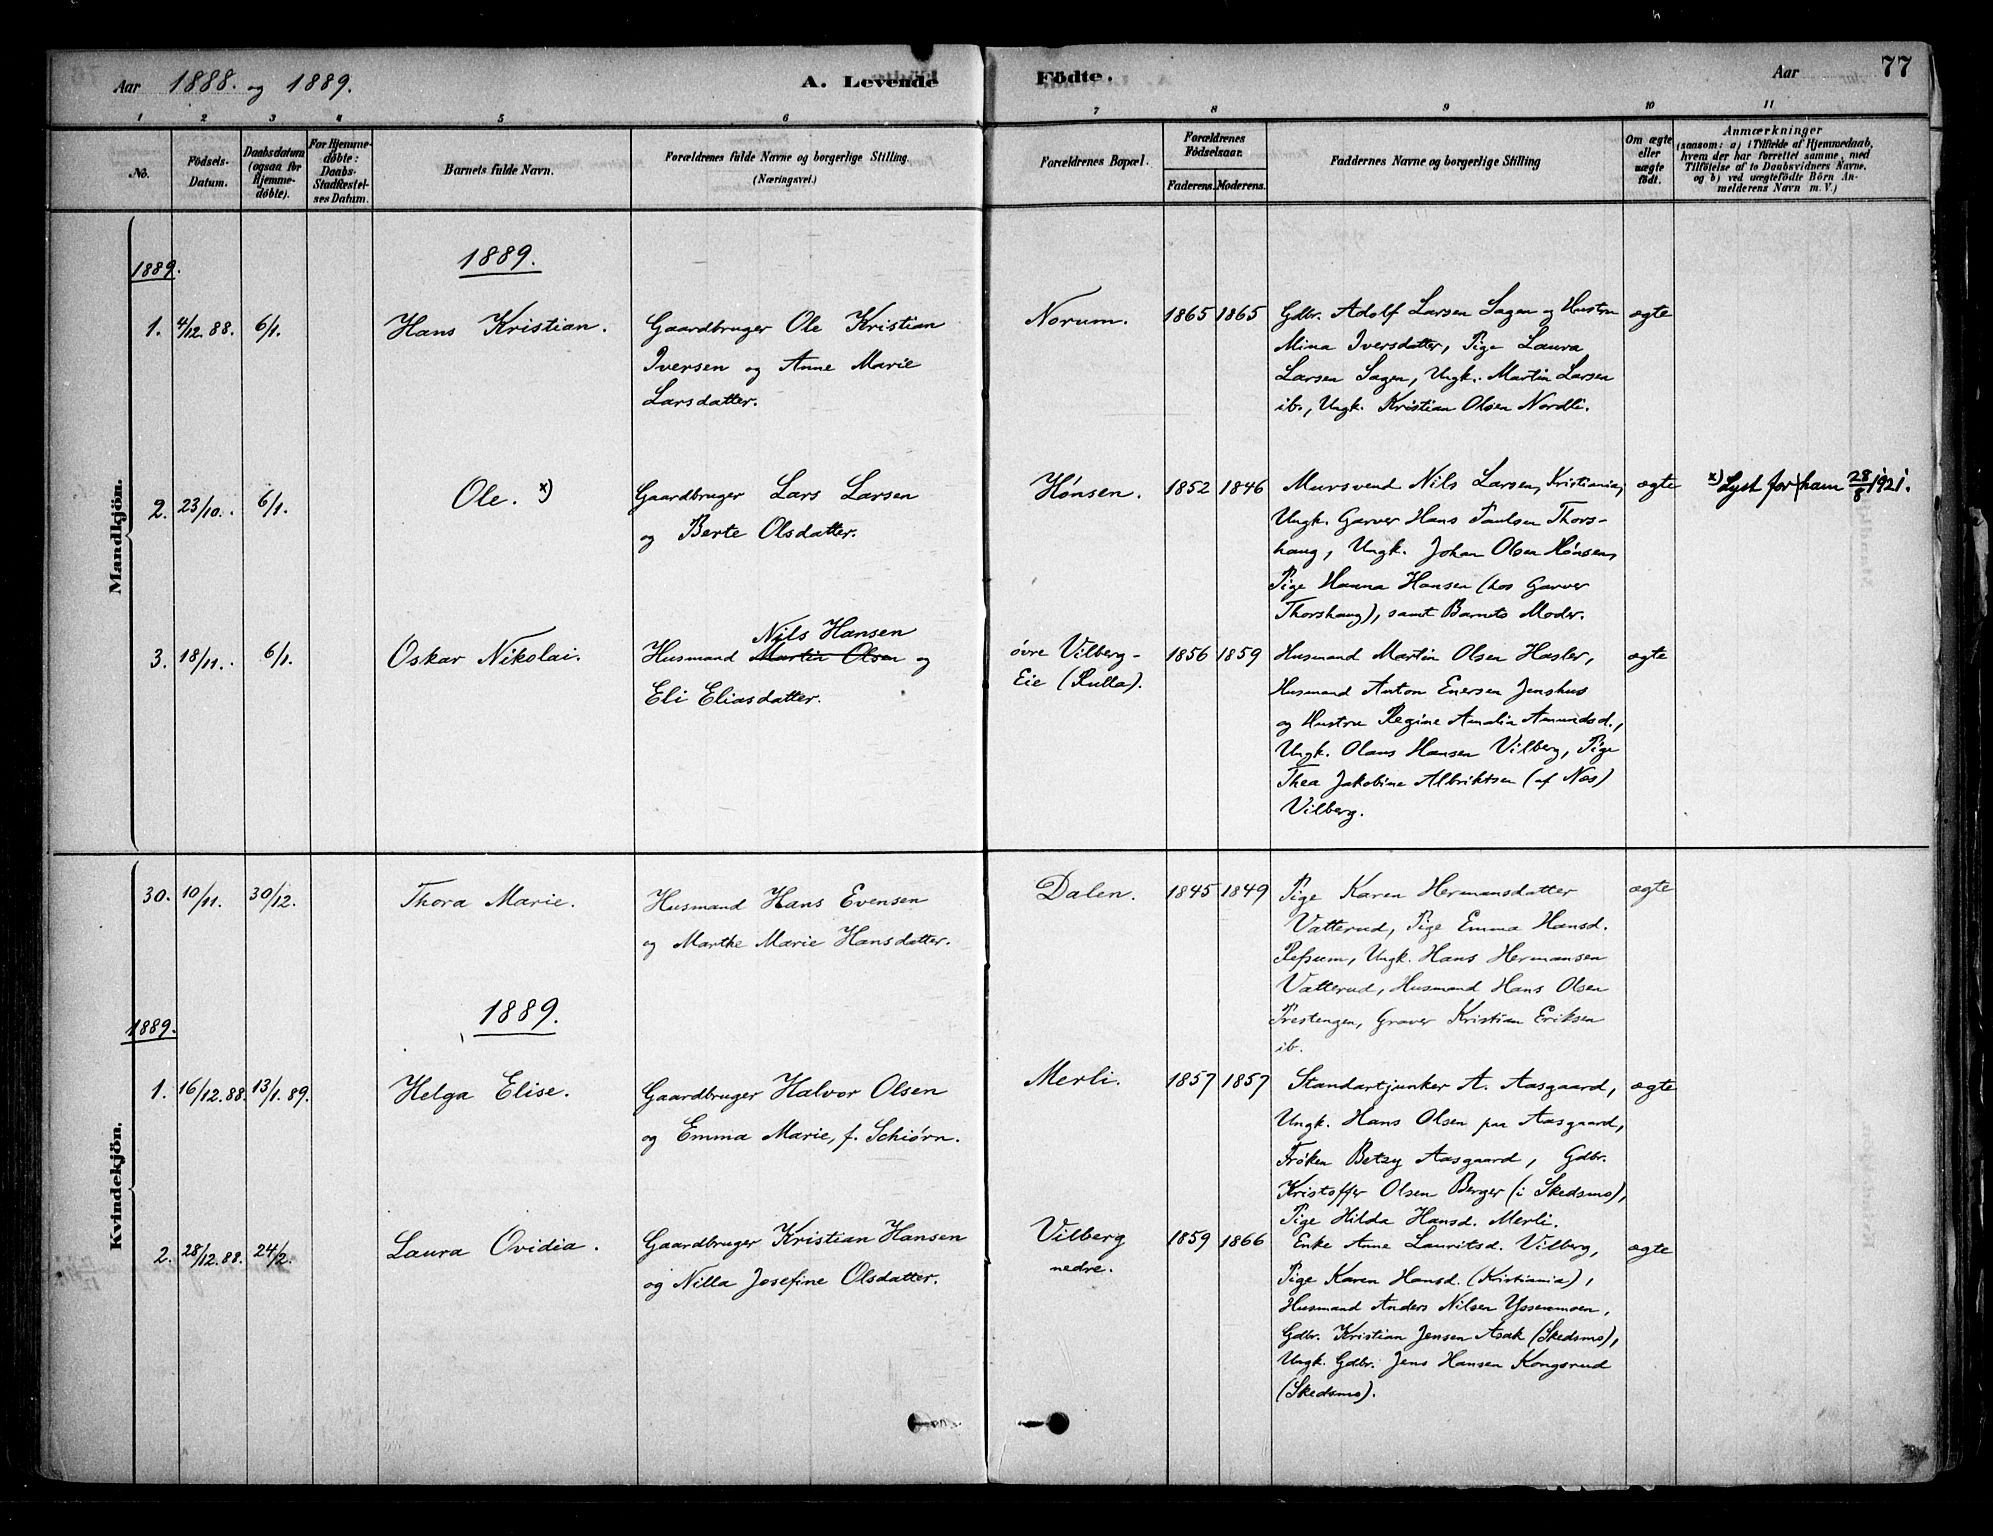 Aar 1888. og 1889.
A. Levende
Födte.
Aar
77
1 2 3 4 5 6 7 8 9 10 11
No.
Födsels-
Datum.
Daabsdatum
(ogsaa for
Hjemme-
döbte).
For Hjemme-
döbte:
Daabs-
Stadfæstel-
ses Datum.
Barnets fulde Navn.
Forældrenes fulde Navne og borgerlige Stilling
(Næringsvei.)
Forældrenes Bopæl.
Forældrenes
Födselsaar.
Faderens. Moderens.
Faddernes Navne og borgerlige Stilling
Om ægte
eller
uægte
født.
Anmærkninger
(saasom: a) i Tilfælde af Hjemmedaab,
hvem der har forrettet samme, med
Tilföielse af to Daabsvidners Navne,
og b) ved uægtefödte Börn An-
melderens Navn m. V.)
Mandkjön.
1889.
1889.
1. 4/12. 88. 6/1. Hans Kristian. Gaardbruger Ole Kristian
Iversen og Anne Marie
Larsdatter.
Norum. 1865 1865 Gdbr. Adolf Larsen Sagen og Hustru
Mina Iversdatter, Pige Laura
Larsen Sagen, Ungk. Martin Larsen
ib., Ungk. Kristian Olsen Nordli.
ægte
2. 23/10.. 6/1. Ole. x) Gaardbruger Lars Larsen
og Berte Olsdatter.
Hønsen. 1852 1846 Mursvend Nils Larsen, Kristiania,
Ungk. Garver Hans Paulsen Thors-
haug, Ungk. Johan Olsen Hønsen,
Pige Hanna Hansen (hos Garver
Thorshaug), samt Barnets Moder.
ægte
x) Lyst for ham 28/8 1921.
3. 18/11.. 6/1. Oskar Nikolai. Husmand Nils Hansen
Martin Olsen og
Eli Eliasdatter.
øvre Vilberg-
Eie (Kulla).
1856 1859 Husmand Martin Olsen Hasler,
Husmand Anton Enersen Jenshus
og Hustru Regine Amalia Amundsd.,
Ungk. Olaus Hansen Vilberg, Pige
Thea Jakobine Albriktsen (af Næs)
Vilberg.
ægte
Kvindekjön.
30. 10/11. 30/12. Thora Marie. Husmand Hans Evensen
og Marthe Marie Hansdatter.
Dalen. 1845 1849 Pige Karen Hermansdatter
Vatterud, Pige Emma Hansd.
Refsum, Ungk. Hans Hermansen
Vatterud, Husmand Hans Olsen
Prestengen, Graver Kristian Eriksen
ib.
ægte
1889.
1889.
1. 16/12. 88. 13/1. 89. Helga Elise. Gaardbruger Halvor Olsen
og Emma Marie, f. Schiørn.
Merli. 1857 1857 Standartjunker A. Aasgaard,
Ungk. Hans Olsen paa Aasgaard,
Frøken Betzy Aasgaard, Gdbr.
Kristoffer Olsen Berger (i Skedsmo),
Pige Hilda Hansd. Merli.
ægte
2. 28/12. 88. 24/2. Laura Ovidia. Gaardbruger Kristian Hansen
og Nilla Josefine Olsdatter.
Vilberg
nedre.
1859 1866 Enke Anne Lauritsd. Vilberg,
Pige Karen Hansd. (Kristiania),
Husmand Anders Nilsen Yssenmoen,
Gdbr. Kristian Jensen Asak (Skedsmo),
Ungk. Gdbr. Jens Hansen Kongsrud
(Skedsmo).
ægte